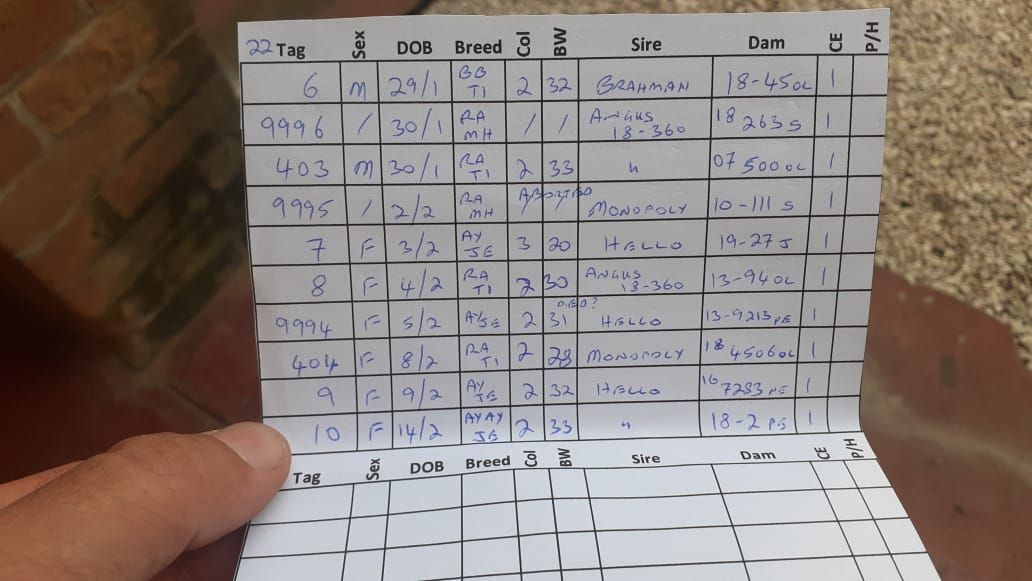 22 Tag Sex DOB Breed Col BW Sire Dam CE P/H
6 M 29/1 BB TI 2 32 BRAHMAN 18-45OL 1
9996 / 30/1 RA MH / / ANGUS 18-360 18 263 S 1
403 M 30/1 RA TI 2 33 " 07 500 OL 1
9995 / 2/2 RA MH ABORTED MONOPOLY 10-111 S 1
7 F 3/2 AY JE 3 20 HELLO 19-27 J 1
8 F 4/2 RA TI 2 30 ANGUS 18-360 13-94 OL 1
9994 F 5/2 AY/JE 2 31 DIED? HELLO 13-9213 PE 1
404 F 8/2 RA TI 2 28 MONOPOLY 18 4506 OL 1
9 F 9/2 AY JE 2 32 HELLO 16 7283 PE 1
10 F 14/2 AYAY JE 2 33 " 18-2 PE 1
Tag Sex DOB Breed Col BW Sire Dam CE P/H